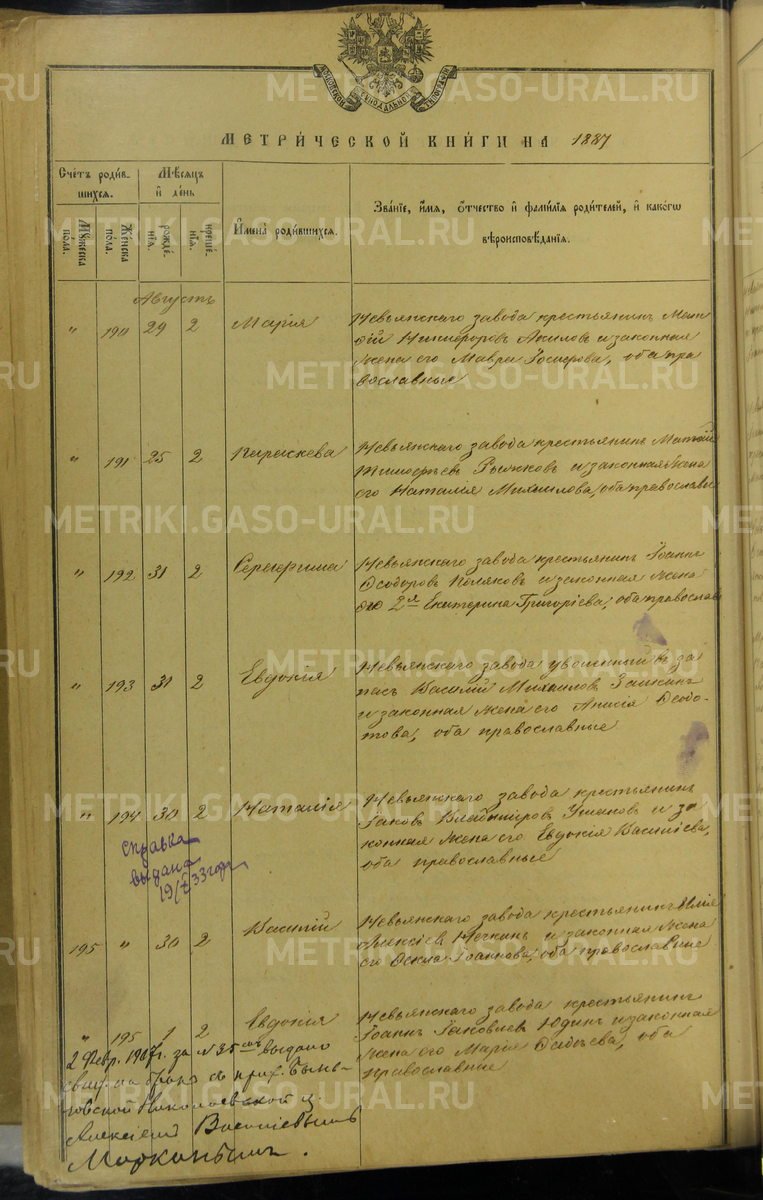 МОСКОВСКОЙ СѴНОДАЛЬНОЙ ТИПОГРАФІИ
METRIKI.GASO-URAL.RU
МЕТРИ́ЧЕСКОЙ КНИ́ГИ НА 1887
Сче́тъ роди́вшихся.
Мꙋ́жеска пола.
Же́нска пола.
Мѣ́сяцъ и҆ де́нь
рожде́нїѧ.
креще́нїѧ.
И҆мена̀ роди́вшихся.
Зва́нїе, и҆́мѧ, ѻ҆́тчество и҆ фами́лїѧ роди́телей, и҆ како́гѡ
вѣроисповѣ́данїѧ.
Августъ
" 190 29 2 Марія
Невьянскаго завода крестьянинъ
и законная
жена его Мавра Іосифова, оба пра
вославные
" 191 25 2 Параскева
Невьянскаго завода крестьянинъ
Тимофеевъ Рыжковъ и законная жена
его Наталія Михаилова, оба православные
" 192 31 2 Серафима
Невьянскаго завода крестьянинъ Іоаннъ
Ѳеодоровъ Поляковъ и законная жена
его 2я Екатерина Григоріева, оба православ
" 193 31 2 Евдокія
Невьянскаго завода уволенный въ за
пасъ Василій Михаиловъ Заикинъ
и законная жена его Анисія Ѳеодо-
това, оба православные
" 194 30 2 Наталія
Невьянскаго завода крестьянинъ
Іаковъ Владиміровъ Ушаковъ и за
конная жена его Евдокія Василіева,
оба православные
справка
выдана
19/I 33 года
195 " 30 2 Василій
Невьянскаго завода крестьянинъ Илія
Алексіевъ и законная жена
его Ѳекла Іоаннова, оба православные
" 195 1 2 Евдокія
Невьянскаго завода крестьянинъ
Іоаннъ Іаковлевъ Юдинъ и законная
жена его Марія, оба
православные
2 Февр. 1907г. за № 35мъ выдано
свид. на бракъ съ прих. Бынь-
говской Николаевской ц.
Алексіемъ Василіевымъ